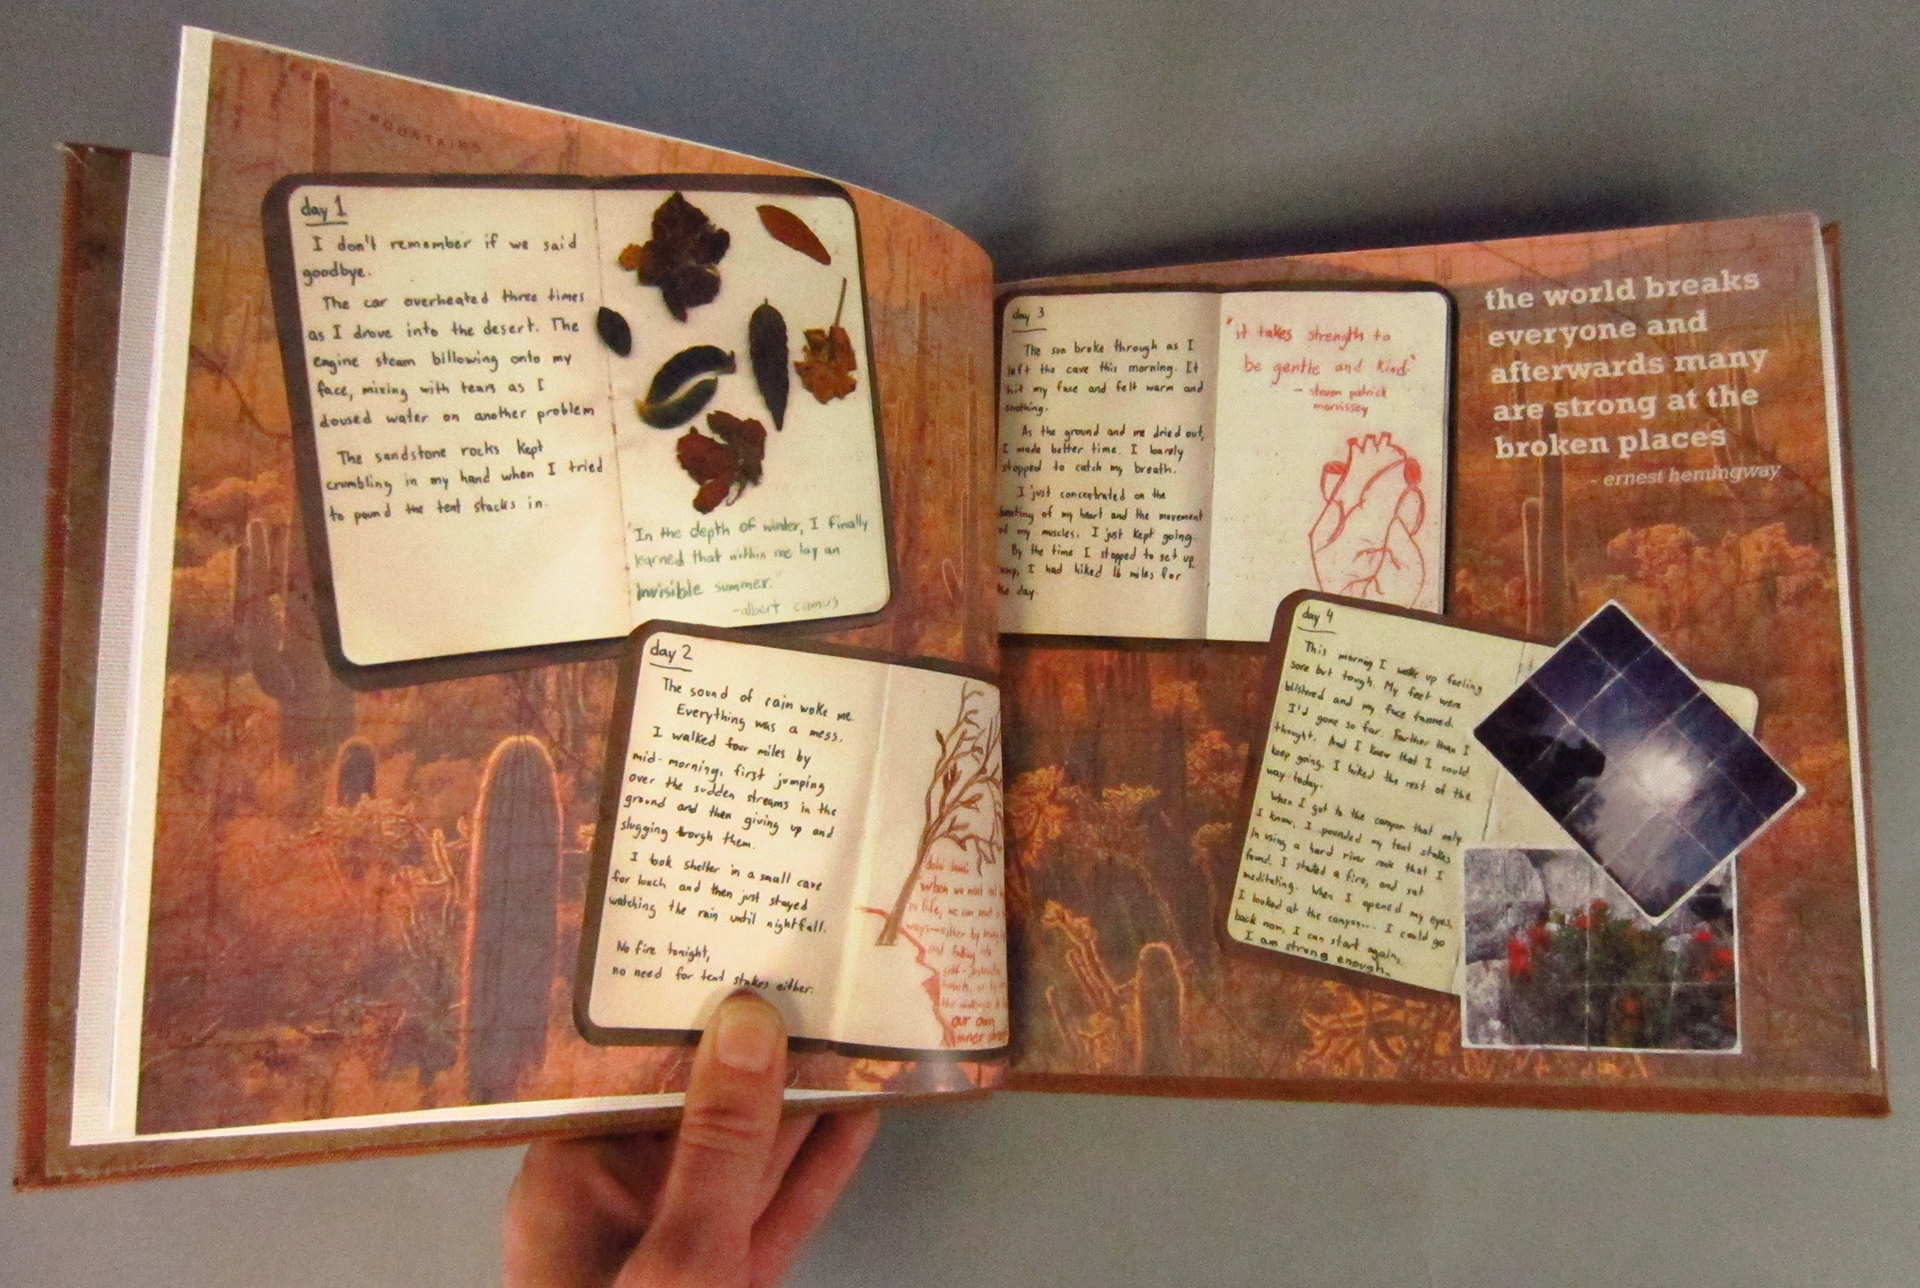 MOUNTAINS
day 1
I don't remember if we said
goodbye.
The car overheated three times
as I drove into the desert. The
engine steam billowing onto my
face, mixing with tears as I
doused water on another problem
The sandstone rocks kept
crumbling in my hand when I tried
to pound the tent stacks in.
"In the depth of winter, I finally
learned that within me lay an
invisible summer."
-albert camus
day 2
The sound of rain woke me.
Everything was a mess.
I walked four miles by
mid-morning, first jumping
over the sudden streams in the
ground and then giving up and
slugging trough them.
I took shelter in a small cave
for lunch and then just stayed
watching the rain until nightfall.
No fire tonight,
no need for tent stakes either.
when we meet
in life, we can
ways—either by
and falling into
self-
habits, or by
the challenge
our own
inner
day 3
The sun broke through as I
left the cave this morning. It
hit my face and felt warm and
soothing.
As the ground and me dried out,
I made better time. I barely
stopped to catch my breath.
I just concentrated on the
beating of my heart and the movement
of my muscles. I just kept going.
By the time I stopped to set up
camp, I had hiked 16 miles for
the day.
"it takes strength to
be gentle and kind."
- steven patrick
morrissey
the world breaks
everyone and
afterwards many
are strong at the
broken places
- ernest hemingway
day 4
This morning I woke up feeling
sore but tough. My feet were
blistered and my face tanned.
I'd gone so far. Farther than I
thought. And I knew that I could
keep going. I hiked the rest of the
way today.
When I got to the canyon that only
I know, I pounded my tent stakes
in using a hard river rock that I
found. I started a fire, and sat
meditating. When I opened my eyes,
I looked at the canyon... I could go
back now, I can start again,
I am strong enough.